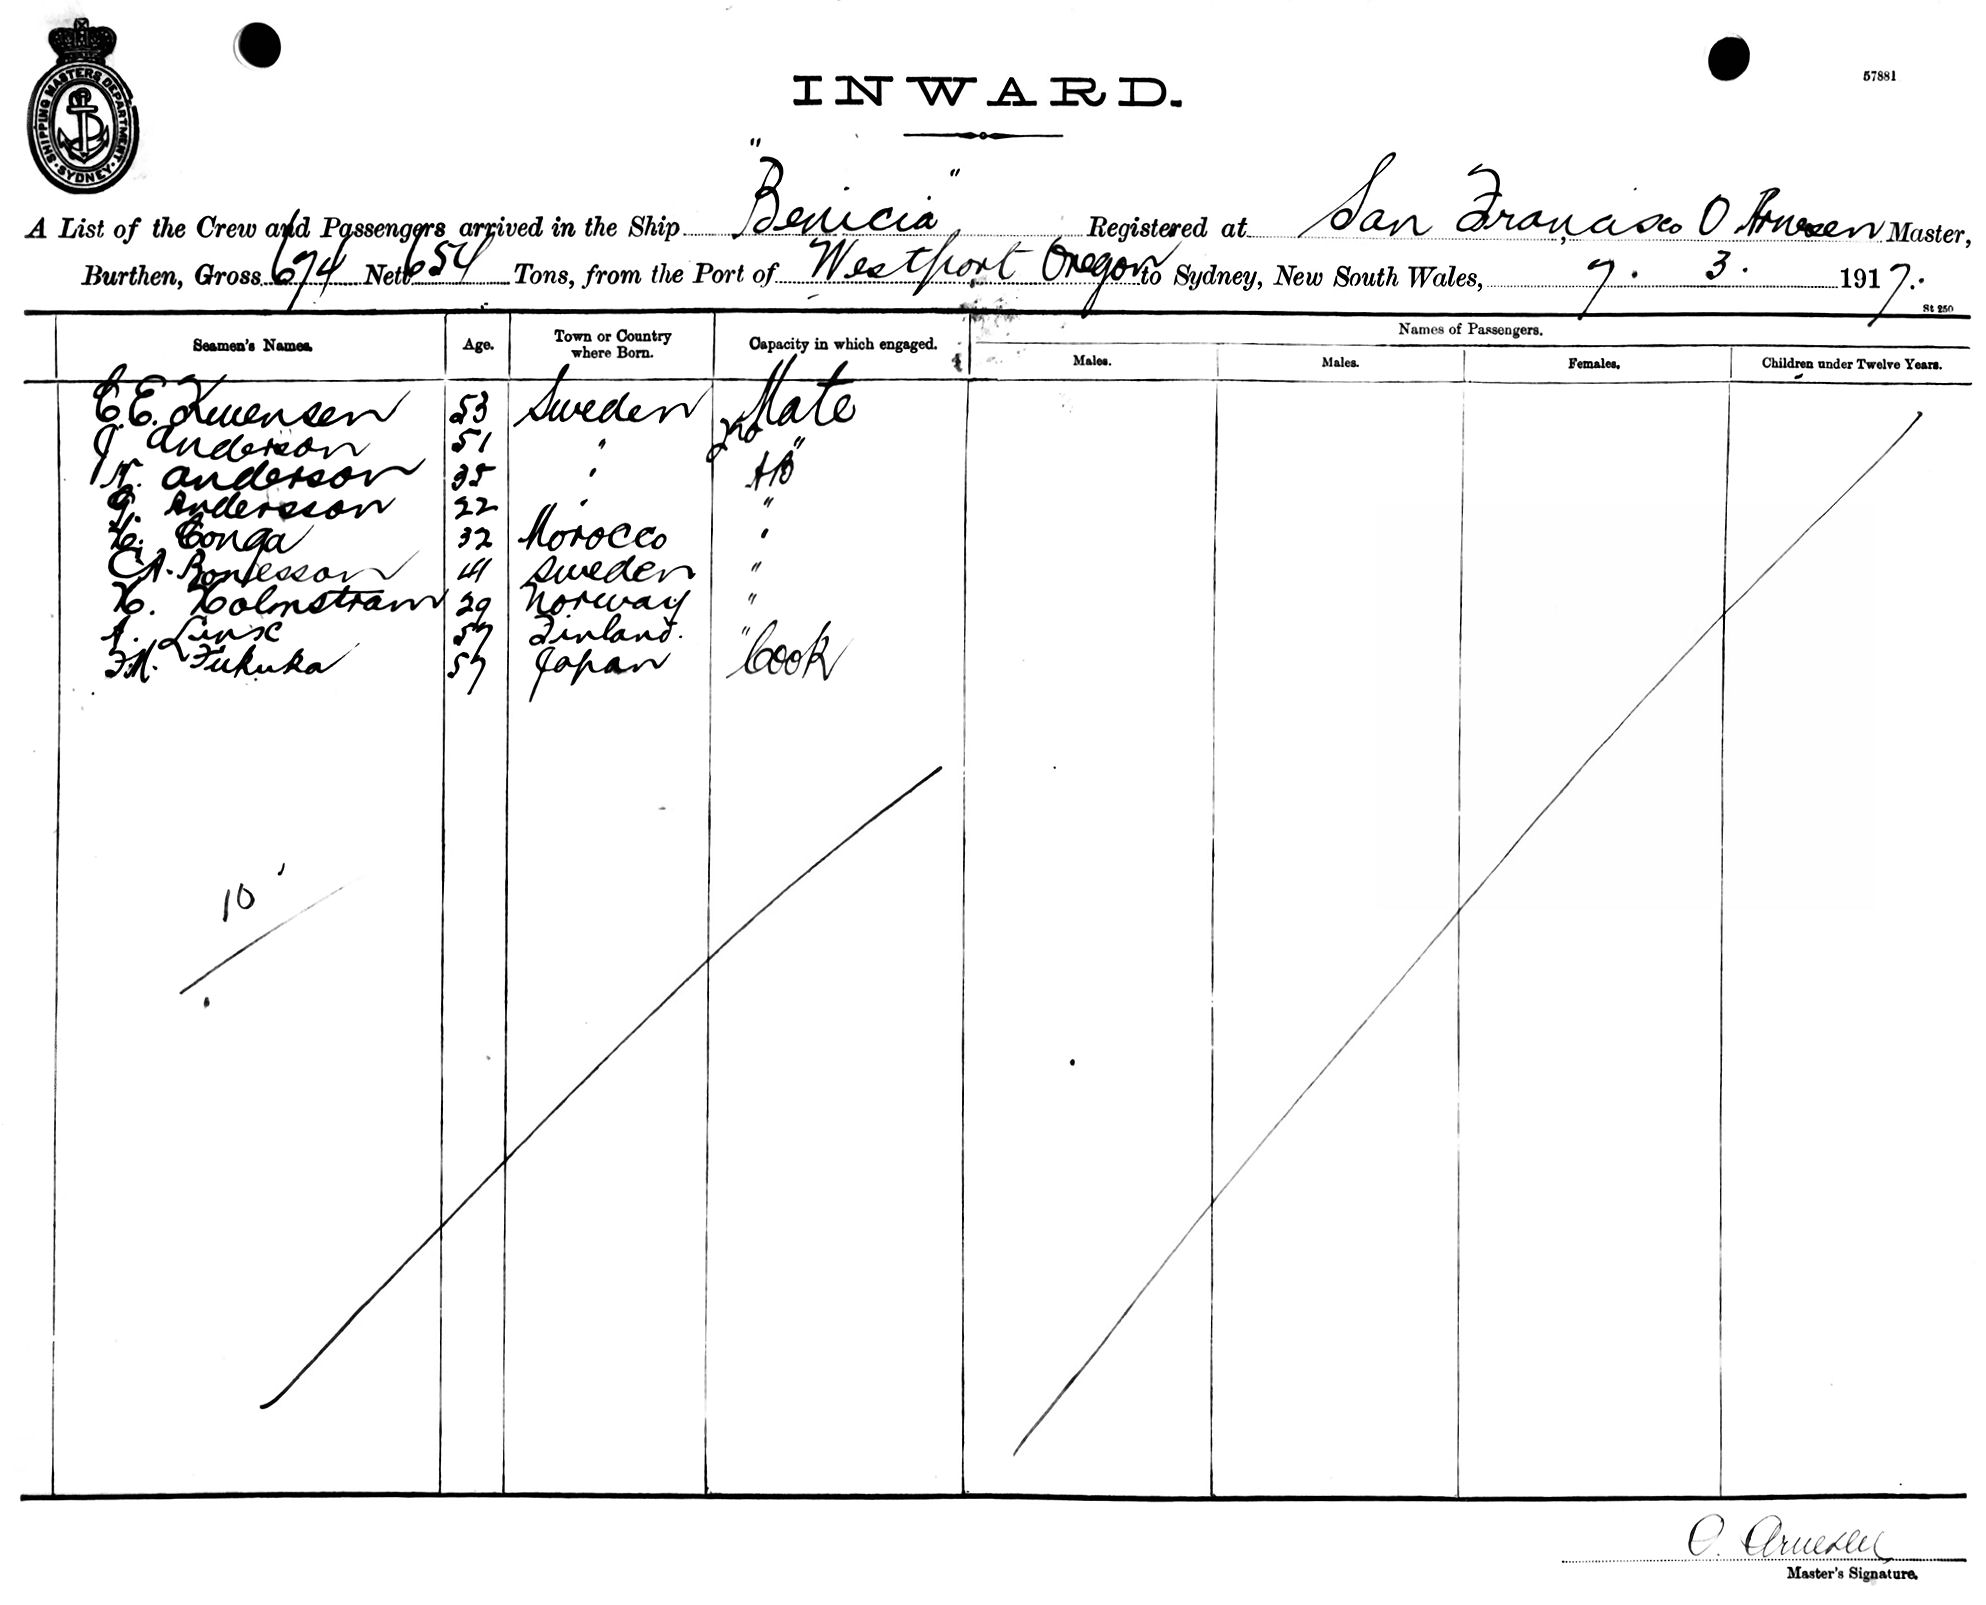 SHIPPING MASTERS DEPARTMENT
SYDNEY
57881
INWARD.
A List of the Crew and Passengers arrived in the Ship "Benicia" Registered at San Francisco O Arnesen Master,
Burthen, Gross 674 Nett 654 Tons, from the Port of Westport Oregon to Sydney, New South Wales, 7. 3. 1917.
St 250
Seamen's Names. Age. Town or Country where Born. Capacity in which engaged. Names of Passengers.
Males. Males. Females. Children under Twelve Years.
C E. 53 Sweden Mate
J. Anderson 51 " 2nd "
N. Anderson 35 " AB
G. Andersson 22 " "
H. Conga 32 Morocco "
C A. 41 Sweden "
H. Holmstram 29 Norway "
A. 57 Finland. "
F.M. Fukuka 57 Japan Cook
10
O. Arnesen
Master's Signature.